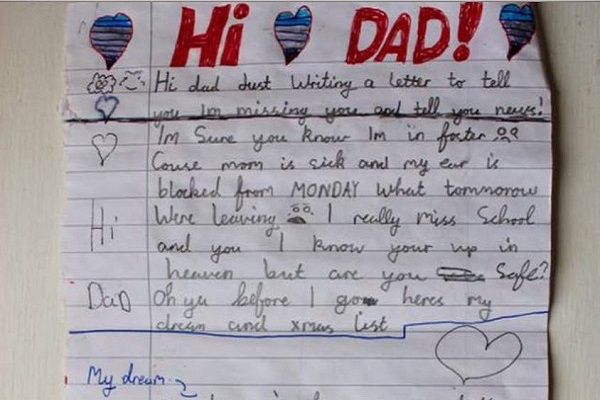 Hi DAD!
Hi dad Just Writing a letter to tell
you Im missing you and tell you news!
Im Sure you know Im in foster
Couse mom is sick and my ear is
blocked from MONDAY What tommorow
Hi Were leaving I really miss School
and you I know your up in
heaven but are you Safe?
DaD Oh ya before I go heres my
dream and xmas list
My dream